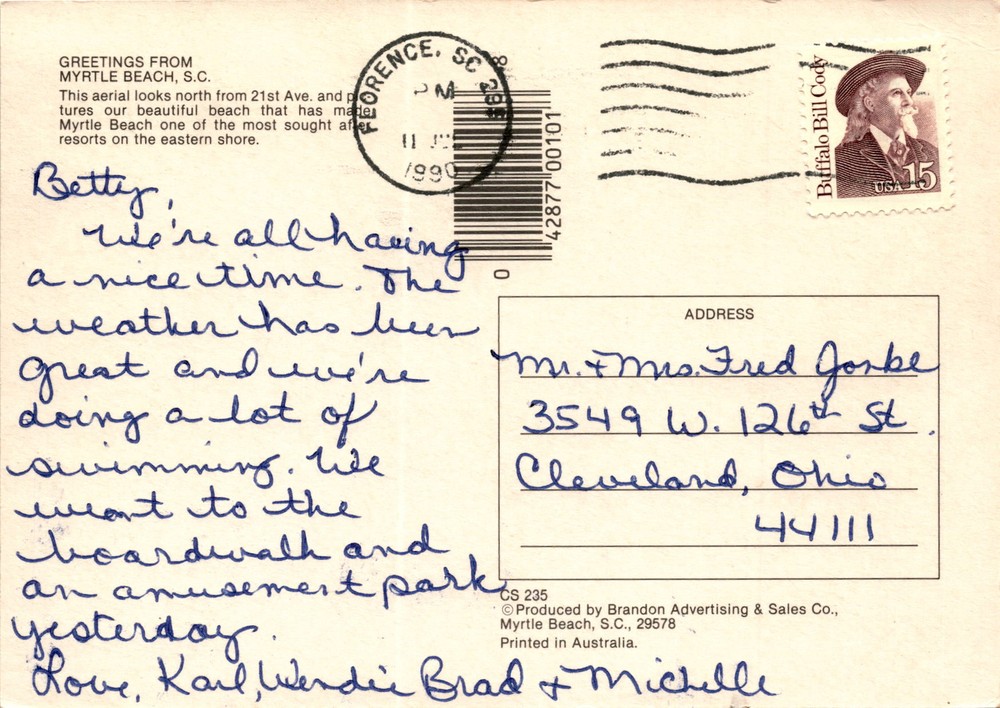 GREETINGS FROM
MYRTLE BEACH, S.C.
This aerial looks north from 21st Ave. and p
tures our beautiful beach that has made
Myrtle Beach one of the most sought after
resorts on the eastern shore.
FLORENCE, SC 295
PM
11 JUL
1990
8
42877 00101
0
Buffalo Bill Cody
USA 15
Betty,
We're all having
a nice time. The
weather has been
great and we're
doing a lot of
swimming. We
went to the
boardwalk and
an amusement park
yesterday.
Love, Karl, Wendie Brad & Michelle
ADDRESS
Mr. & Mrs. Fred
3549 W. 126th St.
Cleveland, Ohio
44111
CS 235
©Produced by Brandon Advertising & Sales Co.,
Myrtle Beach, S.C., 29578
Printed in Australia.